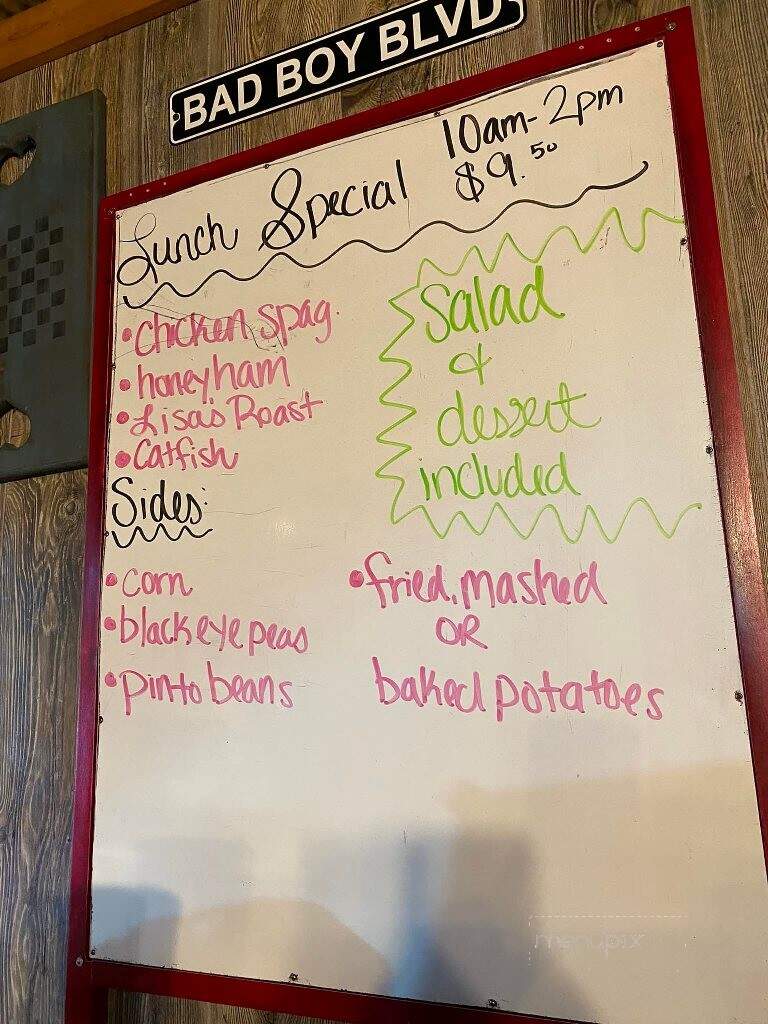 BAD BOY BLVD
Lunch Special 10am-2pm
$9.50
• chicken spag.
• honeyham
• Lisa's Roast
• Catfish
Salad
&
dessert
included
Sides:
• corn
• blackeye peas
• pinto beans
• fried, mashed
OR
baked potatoes
menupix